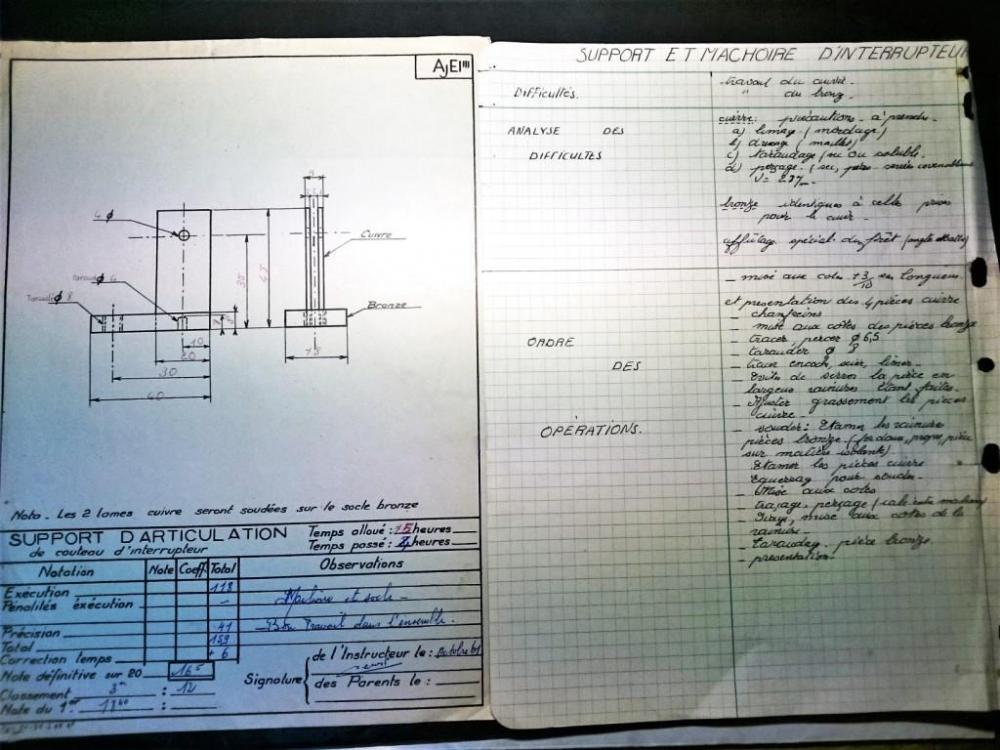 AJEI'''
4 φ
Taraudé φ 8
Cuivre
Bronze
35
45
10
20
30
40
18
Nota. Les 2 lames cuivre seront soudées sur le socle bronze
SUPPORT D'ARTICULATION
de couteau d'interrupteur
Temps alloué : 15 heures
Temps passé : heures
Notation Note Coeff Total Observations
Exécution 118
Pénalités exécution -
Machoire et socle -
Précision 41
Bon Travail dans l'ensemble.
Total 159
Correction temps + 6
Note définitive sur 20 16 5
Classement 3e : 12
Note du 1er :
Signature
de l'Instructeur le : Octobre 61
des Parents le :
SUPPORT ET MACHOIRE D'INTERRUPTEUR
Difficultés.
travail du cuivre.
" du bronz.
ANALYSE DES
DIFFICULTES
cuivre: précautions à prendre.
a) limage (mordage)
b) dressage (maillet)
c) taraudage (sec ou soluble.
d) perçage. (sec,
bronze identiques à celle prises
pour le cuivr.
affûtage spécial du forêt (angle
ORDRE
DES
OPÉRATIONS.
- mise aux cotes +3/10 en longueur
et présentation des 4 pièces cuivre
chanfreins
- mise aux côtes des pièces bronze
- tracer, percer φ 6,5
- tarauder φ 8
- tracer encoch, scier, limer.
- Evite de serrer la pièce en
largeur rainures étant faites.
- Ajuster grassement les pièces
cuivre.
- souder: Etamer les rainure
pièces bronze (fer doux, propre, pièce
sur matière isolant)
Etamer les pièces cuivre
Equerrag pour souder.
- Mise aux cotes
- traçage, perçage (cale entre machoire)
mise aux cotes de la
rainure.
- Taraudag. pièce bronze.
- présentation.